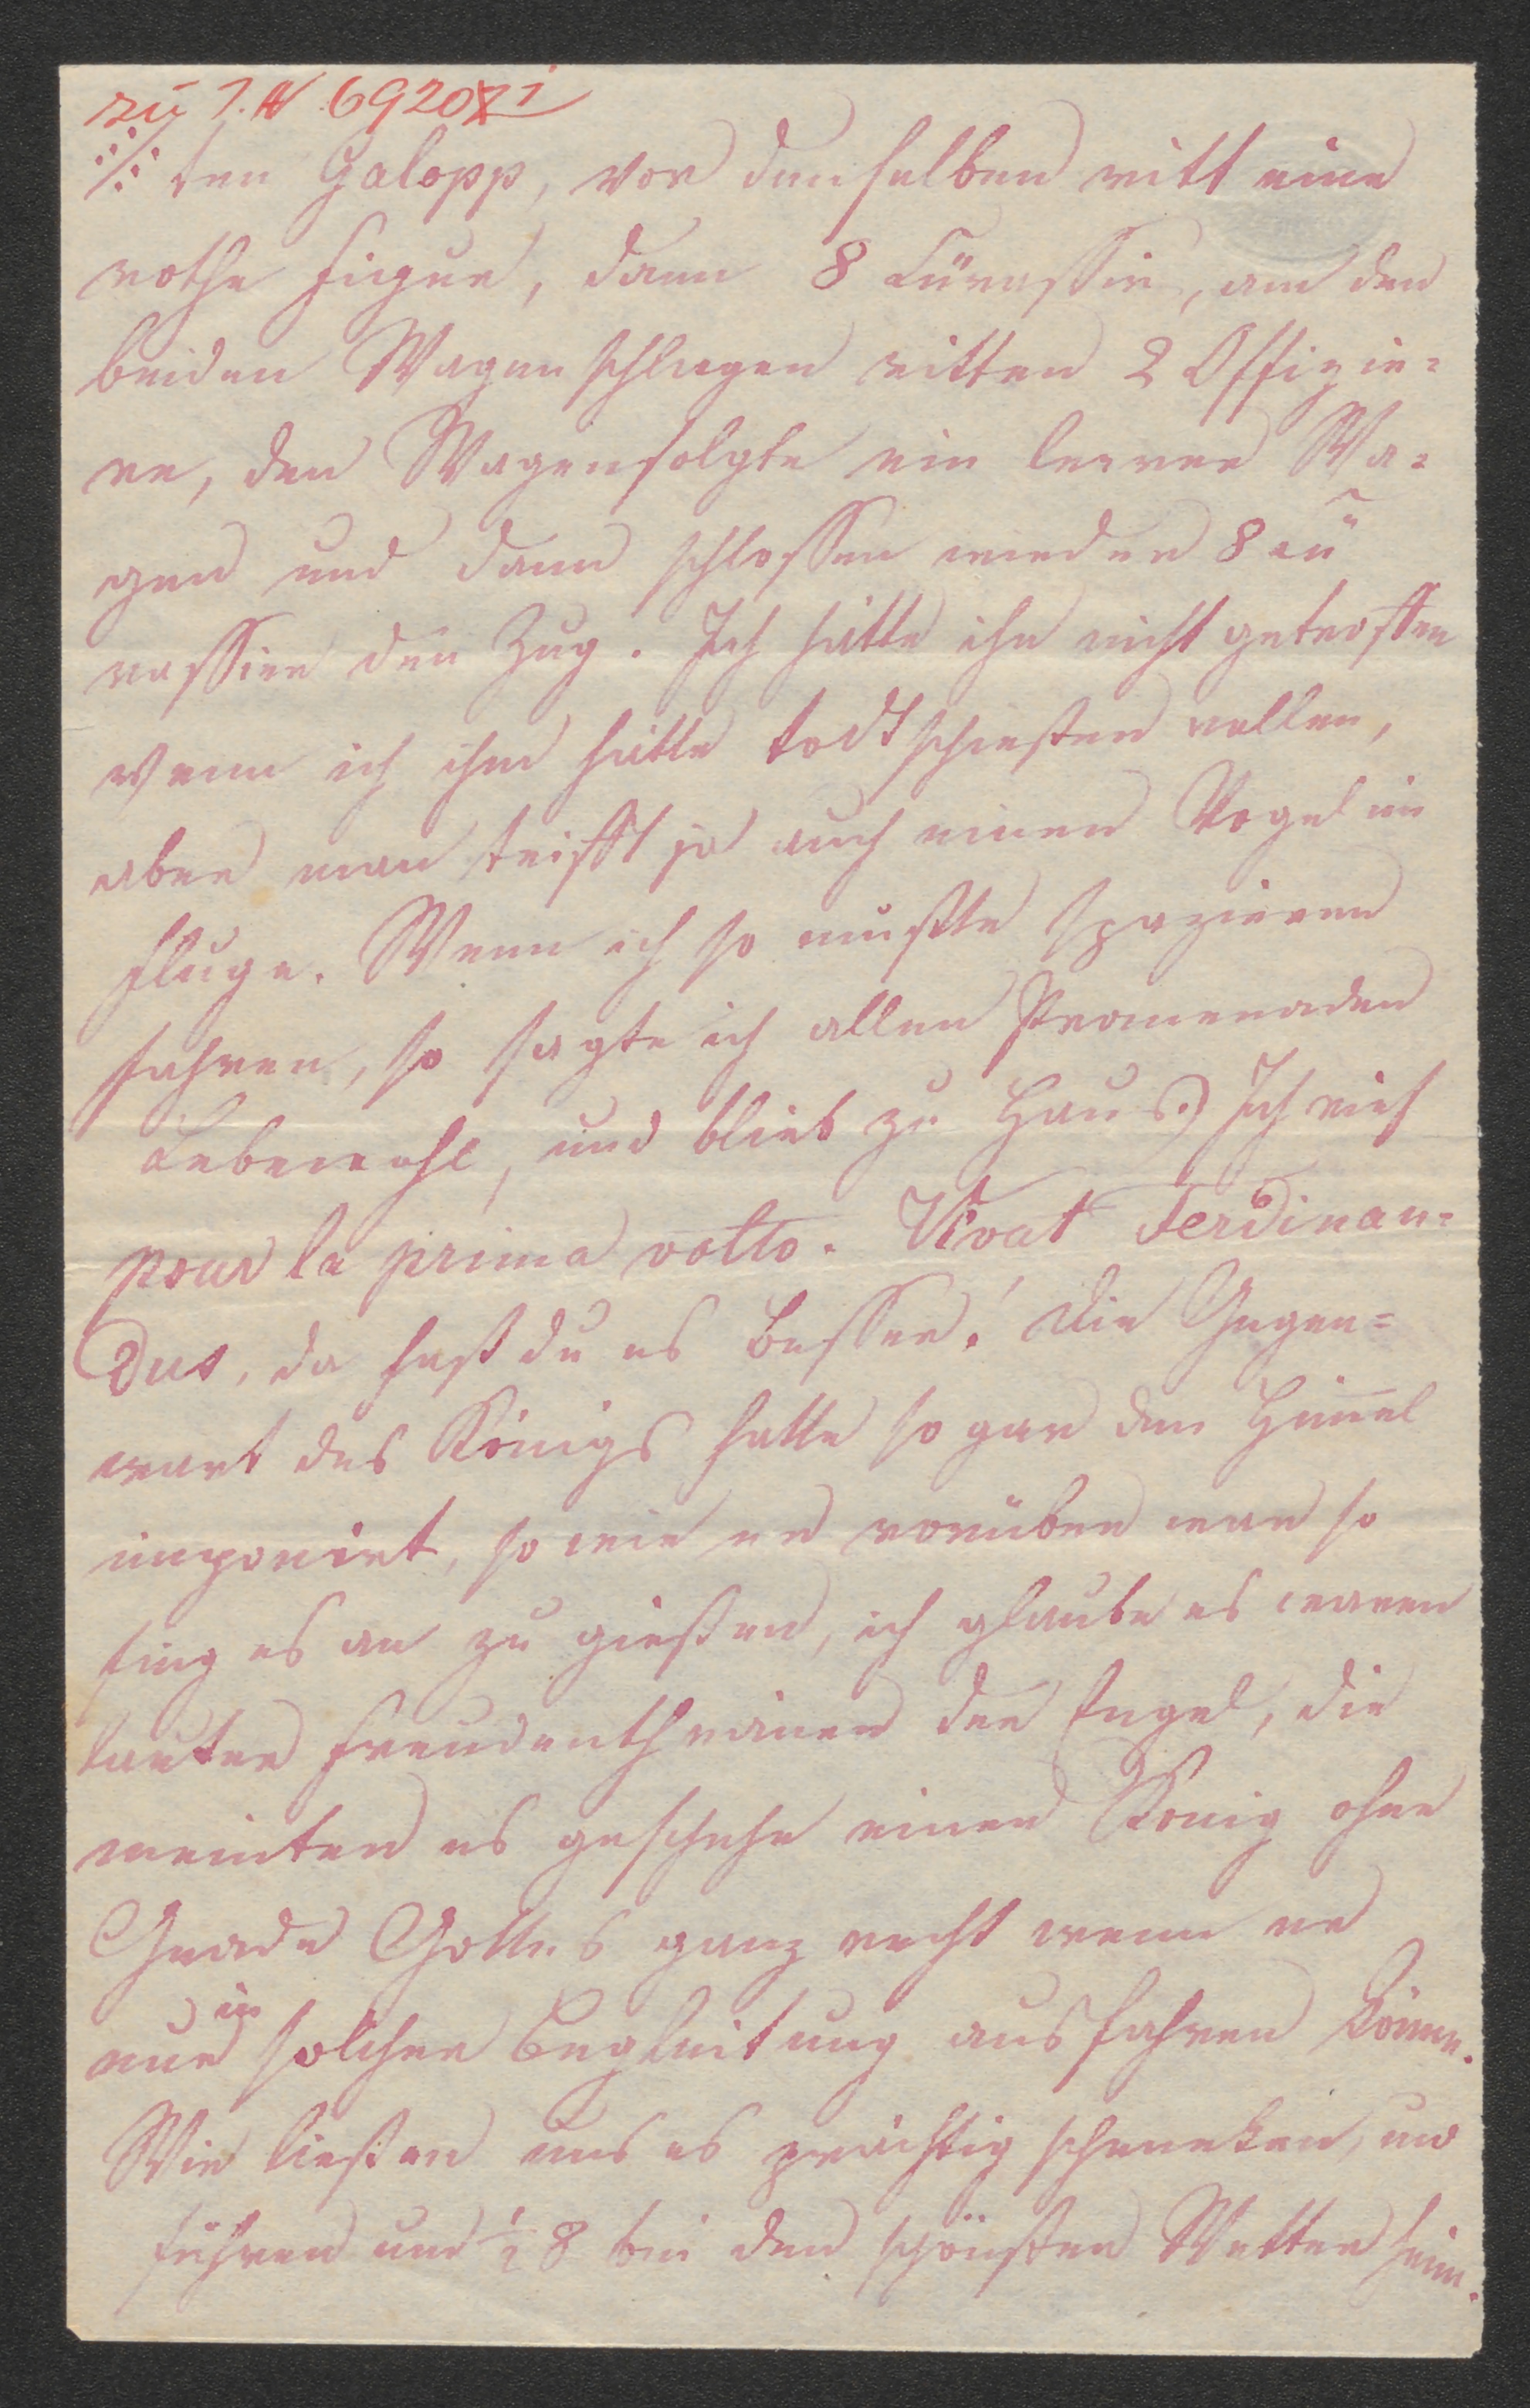 zu I. N 69207
ten Galopp, vor demselben ritt eine
rothe Figur, dann 8 Cürassir, an den
beiden Wagenschlagen ritten 2 Offizie=
re, den Wagen folgte ein leerer Wa=
gen und dann schlossen wieder 8 Cü
rassier den Zug. Ich hätte ihn nicht getroffen
wenn ich ihn hätte todtschießen wollen,
aber man trifft ja auch einen Vogel im
Fluge. Wenn ich so mußte spazieren
fahren, so sagte ich allen Promenaden
Lebewohl, und blieb zu Haus.) Ich rief
pour la prima volto. Vivat Ferdinan=
dus, da hast du es besser! Die Gegen=
wart des Königs hatte so gar den Him̅el
imponirt, so wie er vorüber war so
fing es an zu gießen, ich glaube es waren
lauter Freudenthränen der Engel, die
meinten es geschehe einen König ohne
Gnade Gottes ganz recht wenn er
nur in solcher Begleitung ausfahren könne.
Wir ließen uns es prächtig schmecken, und
fuhren um ½ 8 bei den schönsten Wetter heim.